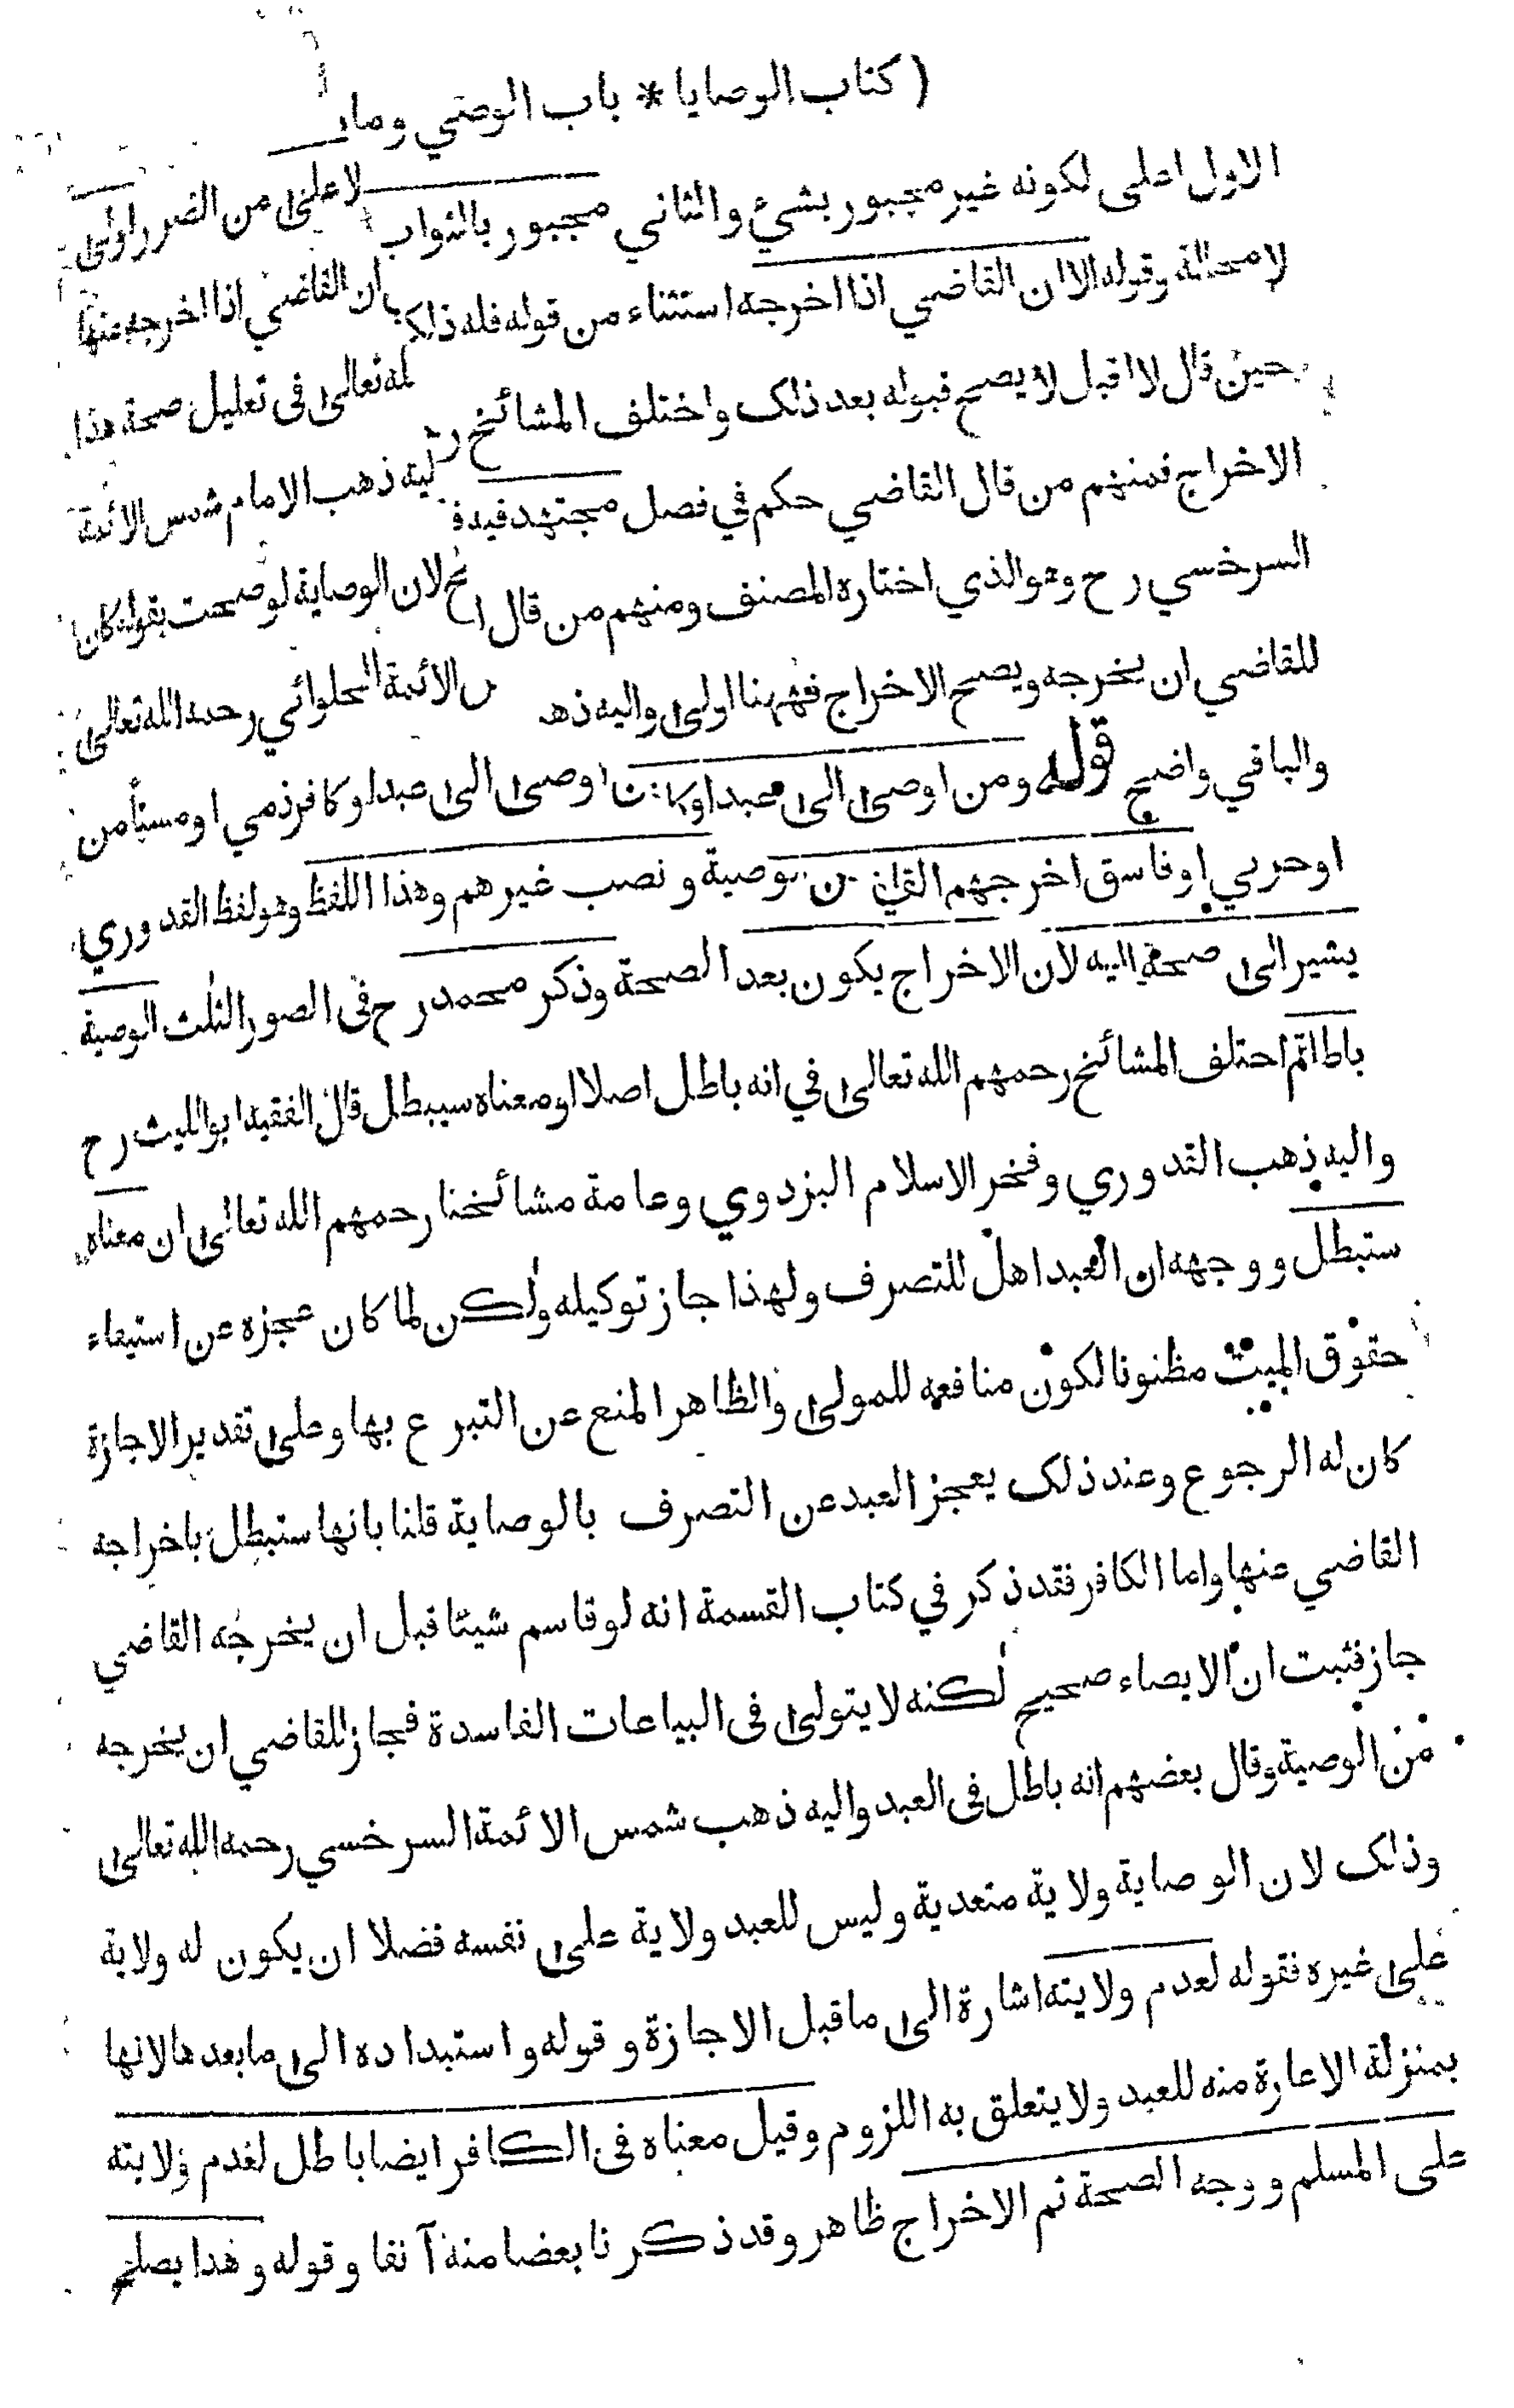 ( كتاب الوصايا * باب الوصي وما
الاول اعلى لكونه غير مجبور بشيء والثاني مجبور بالثواب لاعلى من الضرر اولى
لا محالة وقوله الا ان القاضي اذا اخرجه استثناء من قوله فله ذلك ان القاضي اذا اخرجه عنها
حين قال لا اقبل لا يصح قبوله بعد ذلك واختلف المشائخ تعالى فى تعليل صحة هذا
الاخراج فمنهم من قال القاضي حكم في فصل مجتهد فيه ذهب الامام شمس الائمة
السرخسي رح وهو الذي اختاره المصنف ومنهم من قال لان الوصاية لو صحت بقوله كان
للقاضي ان يخرجه ويصح الاخراج فههنا اولى واليه الائمة الحلوائي رحمه الله تعالى
والباقي واضح قوله ومن اوصى الى عبد او اوصى الى عبد او كافر ذمي او مستأمن
او حربي او فاسق اخرجهم ونصب غيرهم وهذا اللفظ وهو لفظ القدوري
يشير الى صحة اليه لان الاخراج يكون بعد الصحة وذكر محمد رح فى الصور الثلث الوصية
احتلف المشائخ رحمهم الله تعالى في انه باطل اصلا او معناه سيبطل قال الفقيه ابو الليث رح
واليه ذهب القدوري وفخر الاسلام البزدوي وعامة مشائخنا رحمهم الله تعالى ان معناه
ستبطل ووجهه ان العبد اهل للتصرف ولهذا جاز توكيله ولكن لما كان عجزه عن استيفاء
حقوق الميت مظنونا لكون منافعه للمولى والظاهر المنع عن التبرع بها وعلى تقدير الاجازة
كان له الرجوع وعند ذلك يعجز العبد عن التصرف بالوصاية قلنا بانها ستبطل باخراجه
القاضي عنها واما الكافر فقد ذكر في كتاب القسمة انه لو قاسم شيئا قبل ان يخرجه القاضي
جاز فثبت ان الايصاء صحيح لكنه لا يتولى فى البياعات الفاسدة فجاز للقاضي ان يخرجه
من الوصية وقال بعضهم انه باطل فى العبد واليه ذهب شمس الائمة السرخسي رحمه الله تعالى
وذلك لان الوصاية ولاية متعدية وليس للعبد ولاية على نفسه فضلا ان يكون له ولاية
على غيره فقوله لعدم ولايته اشارة الى ما قبل الاجازة وقوله واستبداده الى ما بعدها لانها
بمنزلة الاعارة منه للعبد ولا يتعلق به اللزوم وقيل معناه فى الكافر ايضا باطل لعدم ولايته
على المسلم ووجه الصحة ثم الاخراج ظاهر وقد ذكرنا بعضا منه آنفا وقوله وهذا يصلح